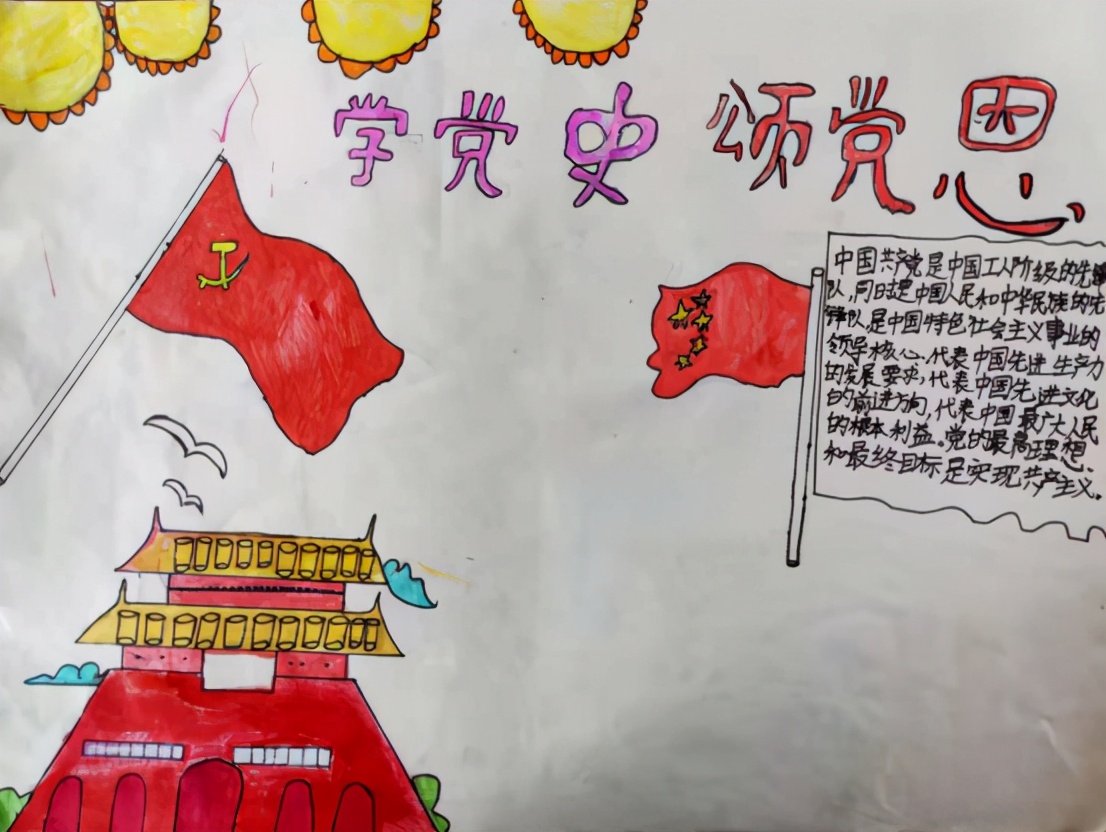 学党史 颂党恩
中国共产党是中国工人阶级的先锋
队,同时是中国人民和中华民族的先
锋队,是中国特色社会主义事业的
领导核心.代表中国先进生产力
的发展要求,代表中国先进文化
的前进方向,代表中国最广大人民
的根本利益。党的最高理想、
和最终目标是实现共产主义。